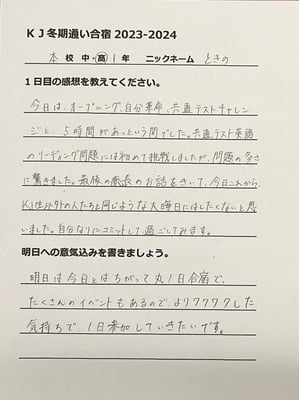 KJ冬期通い合宿 2023-2024
本 校 中・高 1 年 ニックネーム ときの
1日目の感想を教えてください。
今日は、オープニング、自分革命、共通テストチャレン
ジと、5時間があっという間でした。共通テスト英語
のリーディング問題には初めて挑戦しましたが、問題の多さ
に驚きました。最後の塾長のお話をきいて、今日これから、
KJ生以外の人たちと同じような大晦日にはしたくないと思
いました。自分なりにコミットして過ごしてみます。
明日への意気込みを書きましょう。
明日は今日とはちがって丸1日合宿で、
たくさんのイベントもあるので、よりワクワクした
気持ちで、1日参加していきたいです。